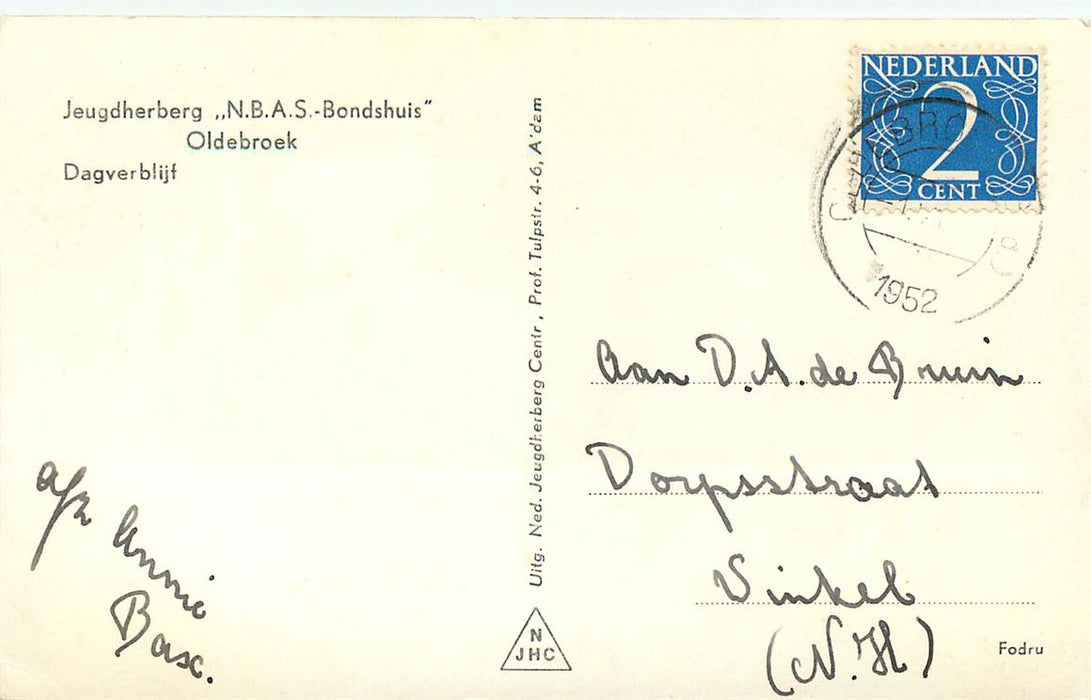 Jeugdherberg „N.B.A.S.-Bondshuis"
Oldebroek
Dagverblijf
afz Annie
Uitg. Ned. Jeugdherberg Centr, Prof. Tulpstr. 4-6, A'dam
N
JHC
NEDERLAND
2
CENT
1952
Aan D.A. de Bruin
Dorpsstraat
Winkel
(N.H)
Fodru